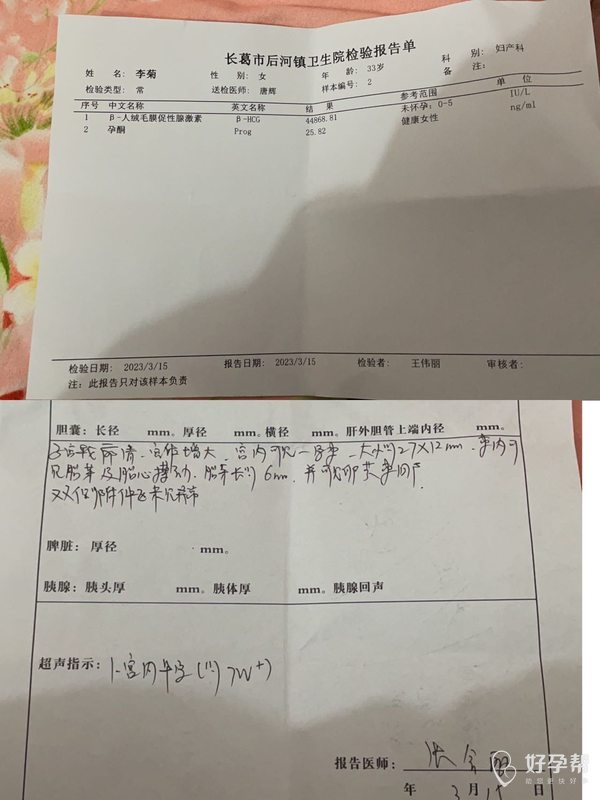 长葛市后河镇卫生院检验报告单
姓 名: 李菊 性 别: 女 年 龄: 33岁 科 别: 妇产科
检验类型: 常 送检医师: 唐辉 样本编号: 2 备 注:
序号 中文名称 英文名称 结 果 参考范围 单 位
1 β-人绒毛膜促性腺激素 β-HCG 44868.81 未怀孕: 0-5 IU/L
2 孕酮 Prog 25.82 健康女性 ng/ml
检验日期: 2023/3/15 报告日期: 2023/3/15 检验者: 王伟丽 审核者:
注: 此报告只对该样本负责
胆囊: 长径 mm。厚径 mm。横径 mm。肝外胆管上端内径 mm。
宫体增大 宫内可见一孕囊 大小约27×12mm 囊内可
见胎芽及胎心搏动 胎芽长约6mm 并可见卵黄囊回声
双侧附件区未见异常
脾脏: 厚径 mm。
胰腺: 胰头厚 mm。胰体厚 mm。胰腺回声
超声指示: 1.宫内早孕(约7W+)
报告医师:
年 3月15日
好孕帮
助您更快好孕